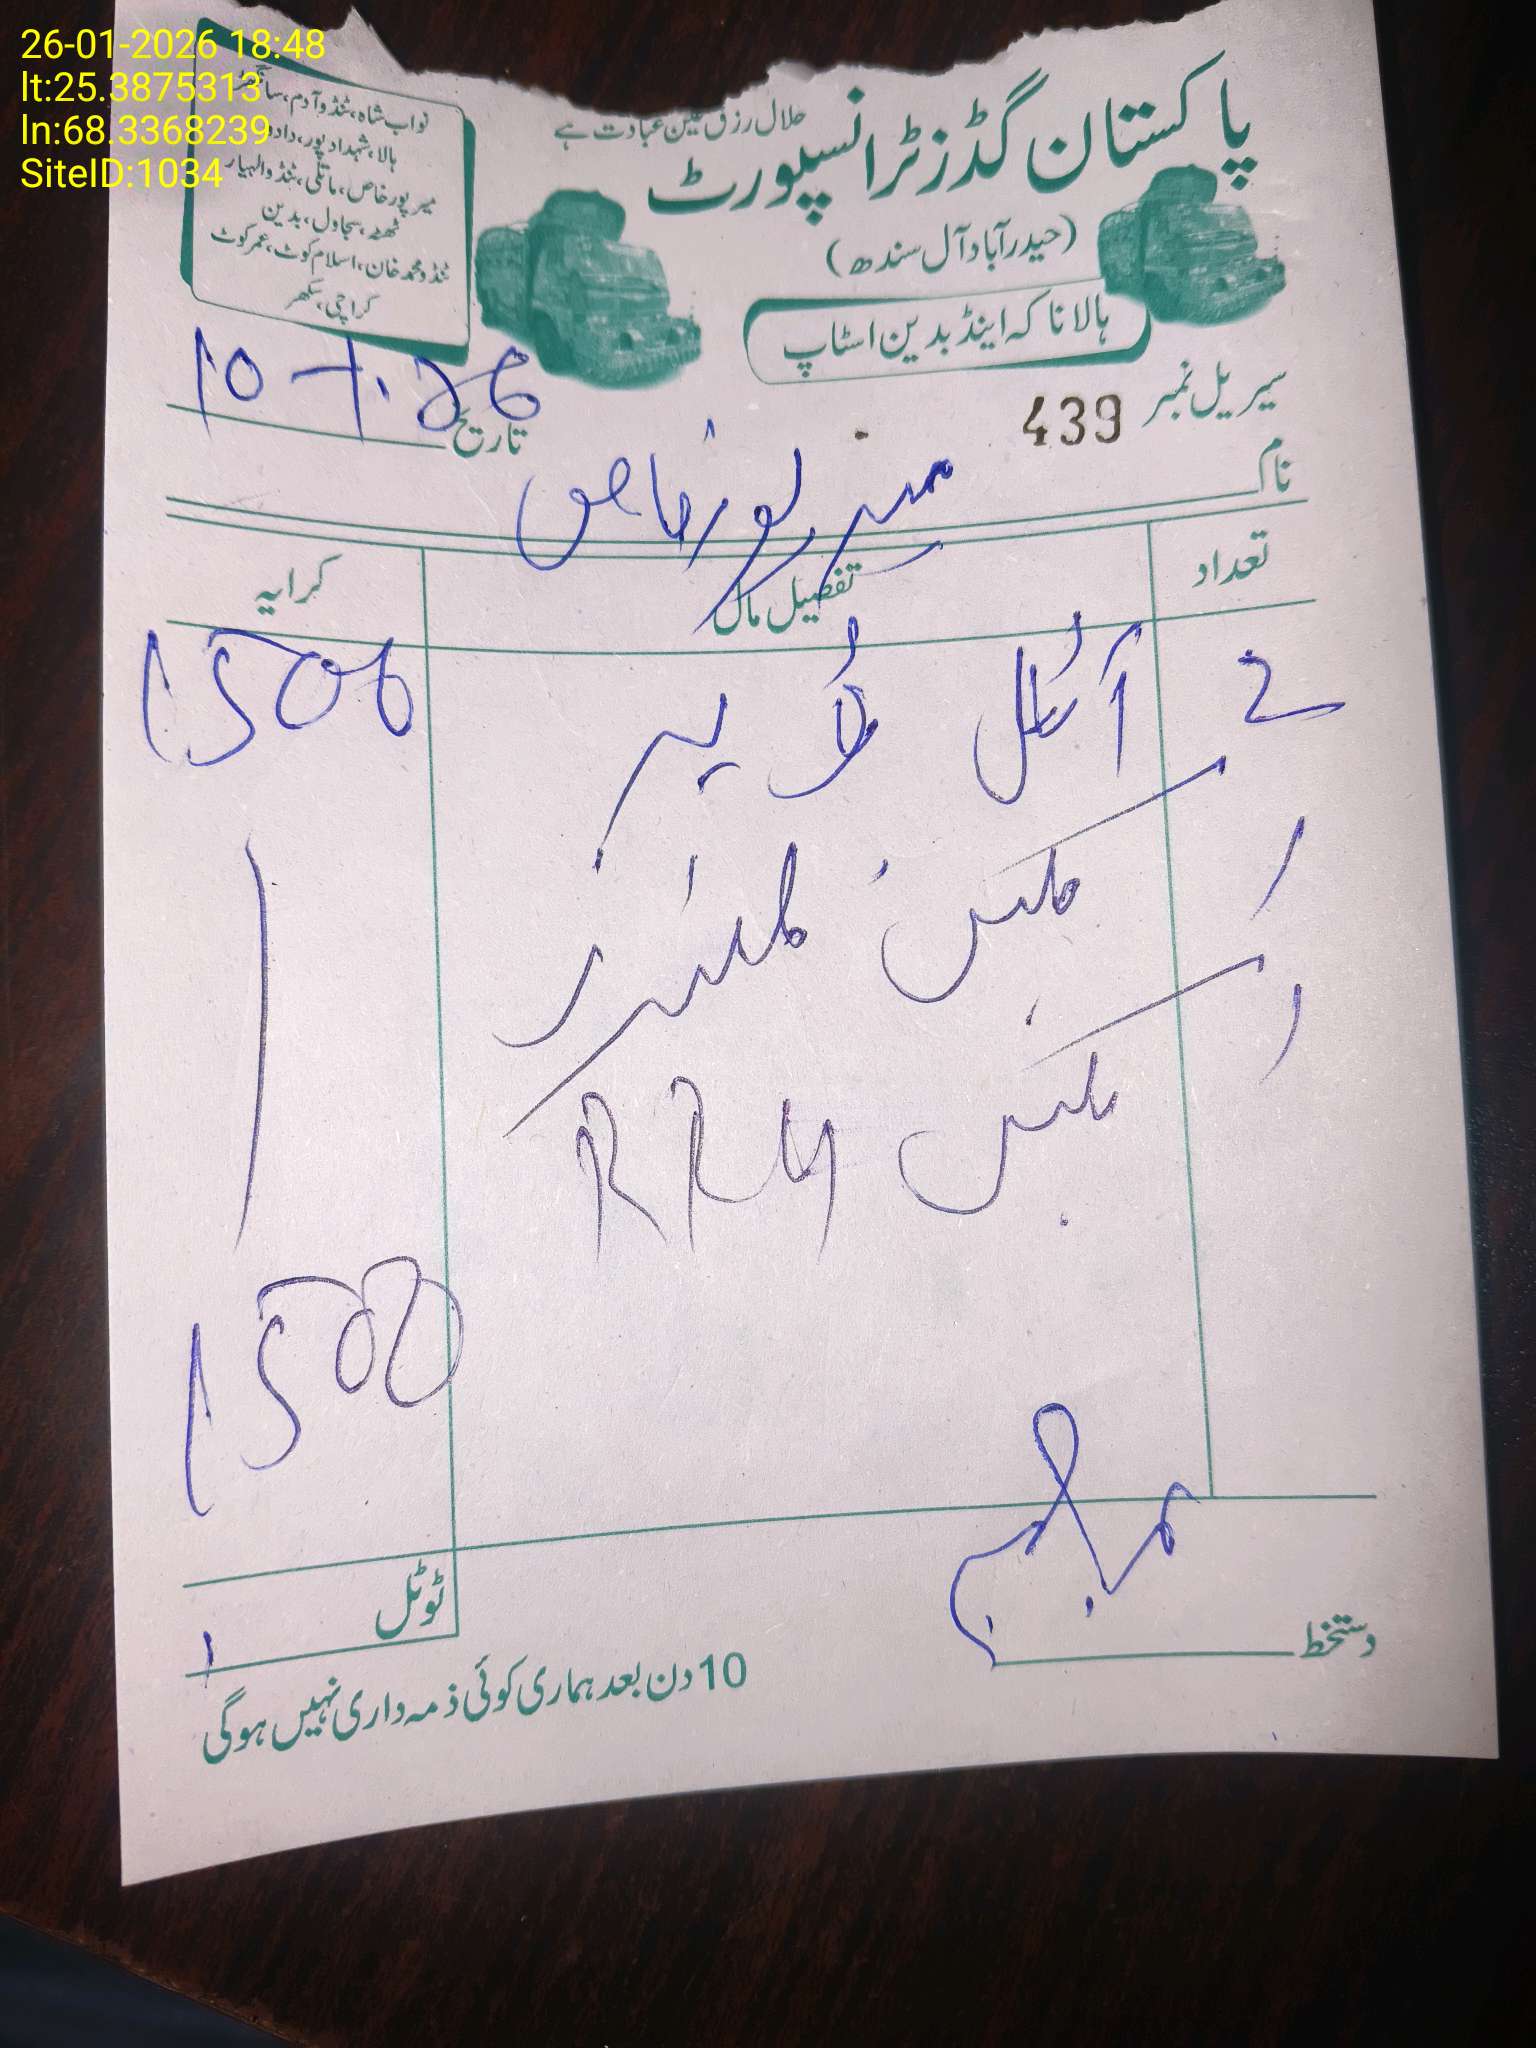 26-01-2026 18:48
lt:25.3875313
ln:68.3368239
SiteID:1034
حلال رزق عین عبادت ہے
پاکستان گڈز ٹرانسپورٹ
(حیدرآباد آل سندھ)
ہالا ناکہ اینڈ بدین اسٹاپ
نواب شاہ، ٹنڈوآدم، سانگھڑ
ہالا، شہدادپور، دادو
میرپورخاص، ماتلی، ٹنڈوالہیار
ٹھٹھہ، سجاول، بدین
ٹنڈو محمد خان، اسلام کوٹ، عمرکوٹ
کراچی، سکھر
سیریل نمبر 439
تاریخ 10-1-26
نام میرپورخاص
تعداد تفصیل مال کرایہ
2 آئل 1500
1
1 بکس RRM
1500
ٹوٹل
دستخط
10 دن بعد ہماری کوئی ذمہ داری نہیں ہوگی